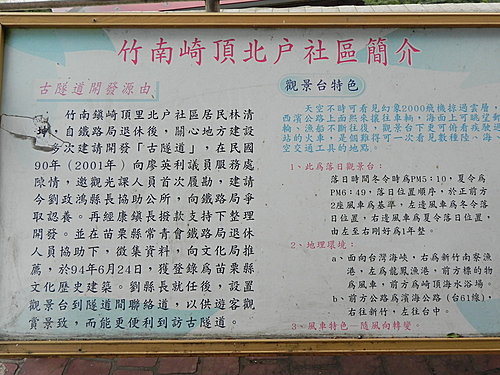 竹南崎頂北户社區簡介
古隧道開發源由
竹南鎮崎頂里北户社區居民林清
坤、自鐵路局退休後，關心地方建設
多次建請開發「古隧道」，在民國
90年（2001年）向廖英利議員服務處
陳情，邀觀光課人員首次履勘，建請
今劉政鴻縣長協助公所，向鐵路局爭
取認養。再經康鎮長撥款支持下整理
開發。並在苗栗縣常青會鐵路局退休
人員協助下，徵集資料，向文化局推
薦，於94年6月24日，獲登錄為苗栗縣
文化歷史建築。劉縣長就任後，設置
觀景台到隧道間聯絡道，以供遊客觀
賞景致，而能更便利到訪古隧道。
觀景台特色
天空不時可看見幻象2000飛機掠過雲層，
西濱公路上面熙來攘往車輛，海面上可眺望郵
輪、漁船不斷往復，觀景台下更可俯看疾駛過
站的火車，是個難得可一次看見數種陸、海、
空交通工具的地點。
1、此為落日觀景台：
落日時間冬令時為PM5:10，夏令為
PM6:49，落日位置順序，於正前方
2座風車為基準，左邊風車為冬令落
日位置，右邊風車為夏令落日位置，
由左至右剛好為1年整。
2、地理環境：
a、面向台灣海峽，右為新竹南寮漁
港，左為龍鳳漁港，前方標的物
為風車，前方為崎頂海水浴場。
b、前方公路為濱海公路（台61線），
右往新竹，左往台中。
3、風車特色—隨風向轉變。